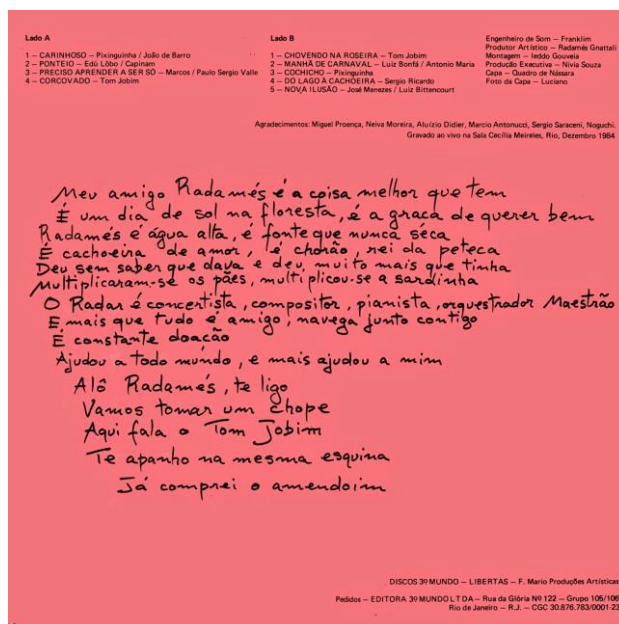 Lado A
1 – CARINHOSO – Pixinguinha / João de Barro
2 – PONTEIO – Edú Lôbo / Capinam
3 – PRECISO APRENDER A SER SÓ – Marcos / Paulo Sergio Valle
4 – CORCOVADO – Tom Jobim
Lado B
1 – CHOVENDO NA ROSEIRA – Tom Jobim
2 – MANHÃ DE CARNAVAL – Luiz Bonfá / Antonio Maria
3 – COCHICHO – Pixinguinha
4 – DO LAGO À CACHOEIRA – Sergio Ricardo
5 – NOVA ILUSÃO – José Menezes / Luiz Bittencourt
Engenheiro de Som – Franklim
Produtor Artístico – Radamés Gnattali
Montagem – Ieddo Gouveia
Produção Executiva – Nivia Souza
Capa – Quadro de Nássara
Foto da Capa – Luciano
Agradecimentos: Miguel Proença, Neiva Moreira, Aluízio Didier, Marcio Antonucci, Sergio Saraceni, Noguchi.
Gravado ao vivo na Sala Cecília Meireles, Rio, Dezembro 1984
Meu amigo Radamés é a coisa melhor que tem
É um dia de sol na floresta, é a graça de querer bem
Radamés é água alta, é fonte que nunca séca
É cachoeira de amor, é chorão, rei da peteca
Deu sem saber que dava e deu muito mais que tinha
Multiplicaram-se os pães, multiplicou-se a sardinha
O Radar é concertista, compositor, pianista, orquestrador Maestrão
E mais que tudo é amigo, navega junto contigo
É constante doação
Ajudou a todo mundo, e mais ajudou a mim
Alô Radamés, te ligo
Vamos tomar um chope
Aqui fala o Tom Jobim
Te apanho na mesma esquina
Já comprei o amendoim
DISCOS 3º MUNDO – LIBERTAS – F. Mario Produções Artísticas
Pedidos – EDITORA 3º MUNDO LTDA – Rua da Glória Nº 122 – Grupo 105/106
Rio de Janeiro – R.J. – CGC 30.876.783/0001-23